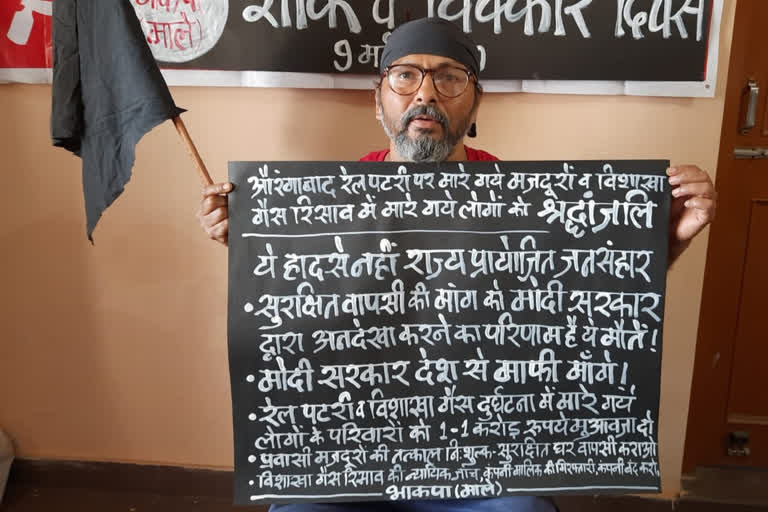 (माले)
शोक व धिक्कार दिवस
9 मई
औरंगाबाद रेल पटरी पर मारे गये मजदूरों व विशाखा
गैस रिसाव में मारे गये लोगों को श्रद्धांजलि
ये हादसे नहीं राज्य प्रायोजित जनसंहार
• सुरक्षित वापसी की मांग को मोदी सरकार
द्वारा अनदेखा करने का परिणाम है ये मौतें!
• मोदी सरकार देश से माफी माँगे।
• रेल पटरी व विशाखा गैस दुर्घटना में मारे गये
लोगों के परिवारों को 1-1 करोड़ रुपये मुआवजा दो
• प्रवासी मजदूरों की तत्काल निःशुल्क-सुरक्षित घर वापसी कराओ
• विशाखा गैस रिसाव की न्यायिक जाँच, कंपनी मालिक की गिरफ्तारी, कंपनी बंद करो.
भाकपा (माले)